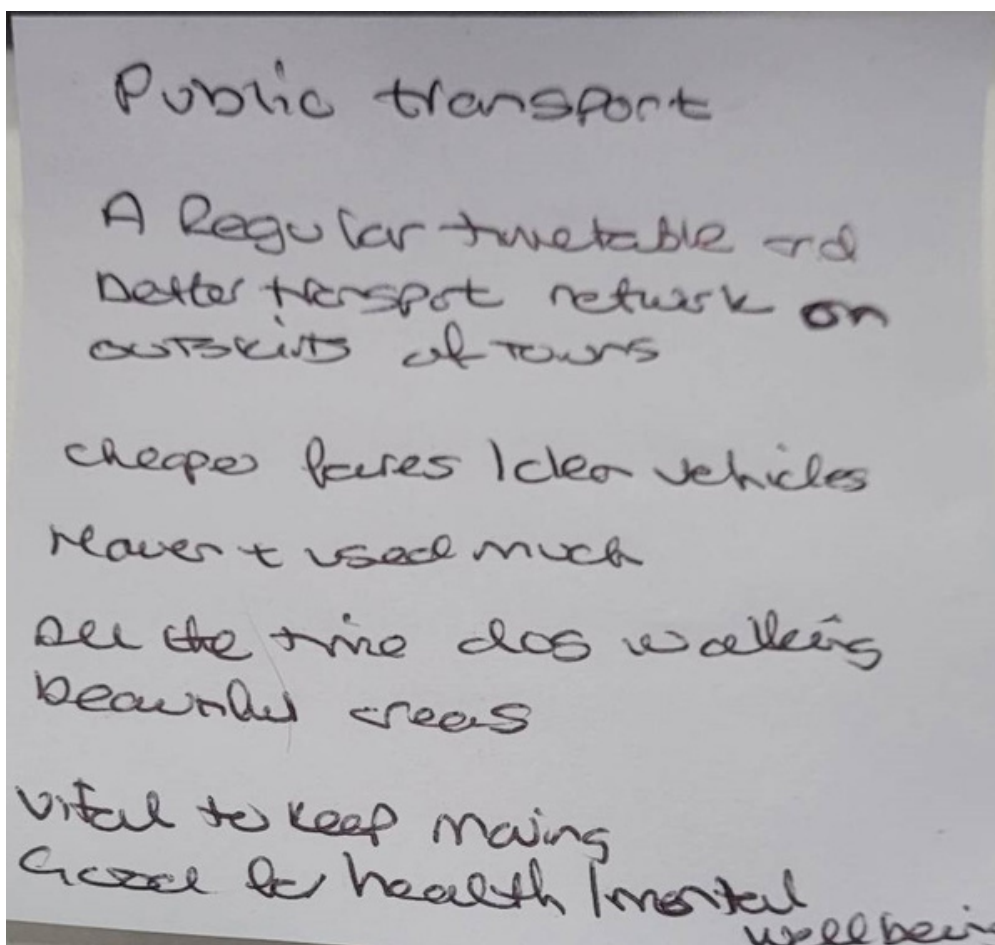 Public transport
A Regular timetable and
better transport network on
outskirts of towns
cheaper fares / clean vehicles
Haven't used much
All the time dog walking
beautiful areas
vital to keep moving
Good for health / mental
wellbein